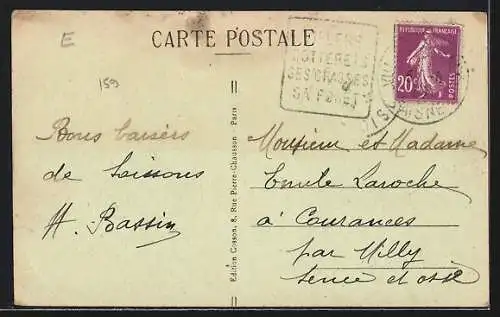 E
CARTE POSTALE
159
VILLERS
COTTERETS
SES CHASSES
SA FORET
REPUBLIQUE FRANÇAISE
20c
POSTES
AISNE
Bons baisers
de Soissons
H. Bassin
Edition Cosson, 8, Rue Pierre-Chausson - Paris
Monsieur et Madame
Emile Laroche
à Courances
par Milly
Seine et Oise